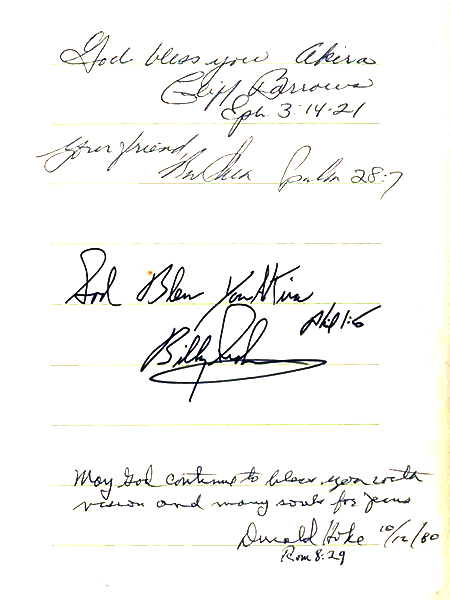 God bless you Akira
Cliff Barrows
Eph 3:14-21
Your friend,
Bev Shea Psalm 28:7
God Bless You Akira
Phil 1:6
Billy Graham
May God continue to bless you with
vision and many souls for Jesus
Donald Hoke 10/12/80
Rom 8:29